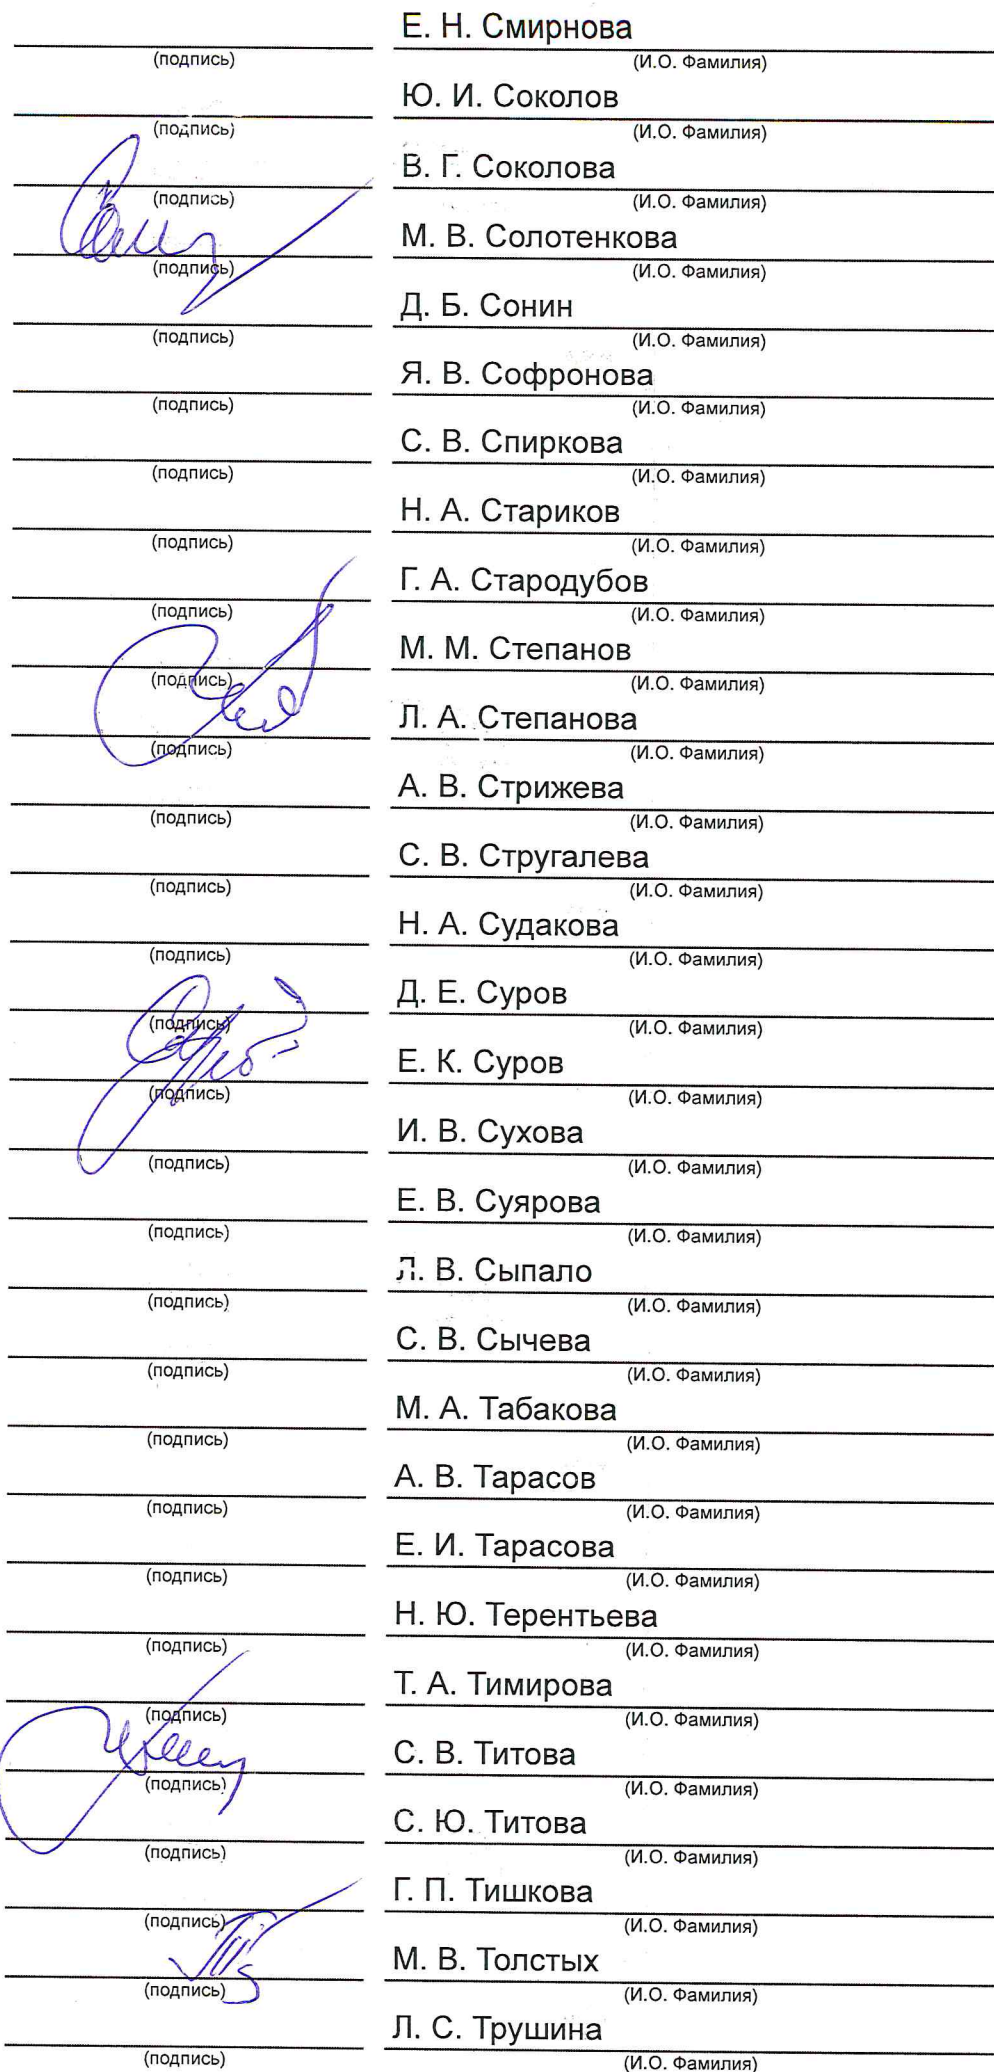 Е. Н. Смирнова
(подпись) (И.О. Фамилия)
Ю. И. Соколов
(подпись) (И.О. Фамилия)
В. Г. Соколова
(подпись) (И.О. Фамилия)
М. В. Солотенкова
(подпись) (И.О. Фамилия)
Д. Б. Сонин
(подпись) (И.О. Фамилия)
Я. В. Софронова
(подпись) (И.О. Фамилия)
С. В. Спиркова
(подпись) (И.О. Фамилия)
Н. А. Стариков
(подпись) (И.О. Фамилия)
Г. А. Стародубов
(подпись) (И.О. Фамилия)
М. М. Степанов
(подпись) (И.О. Фамилия)
Л. А. Степанова
(подпись) (И.О. Фамилия)
А. В. Стрижева
(подпись) (И.О. Фамилия)
С. В. Стругалева
(подпись) (И.О. Фамилия)
Н. А. Судакова
(подпись) (И.О. Фамилия)
Д. Е. Суров
(подпись) (И.О. Фамилия)
Е. К. Суров
(подпись) (И.О. Фамилия)
И. В. Сухова
(подпись) (И.О. Фамилия)
Е. В. Суярова
(подпись) (И.О. Фамилия)
Л. В. Сыпало
(подпись) (И.О. Фамилия)
С. В. Сычева
(подпись) (И.О. Фамилия)
М. А. Табакова
(подпись) (И.О. Фамилия)
А. В. Тарасов
(подпись) (И.О. Фамилия)
Е. И. Тарасова
(подпись) (И.О. Фамилия)
Н. Ю. Терентьева
(подпись) (И.О. Фамилия)
Т. А. Тимирова
(подпись) (И.О. Фамилия)
С. В. Титова
(подпись) (И.О. Фамилия)
С. Ю. Титова
(подпись) (И.О. Фамилия)
Г. П. Тишкова
(подпись) (И.О. Фамилия)
М. В. Толстых
(подпись) (И.О. Фамилия)
Л. С. Трушина
(подпись) (И.О. Фамилия)